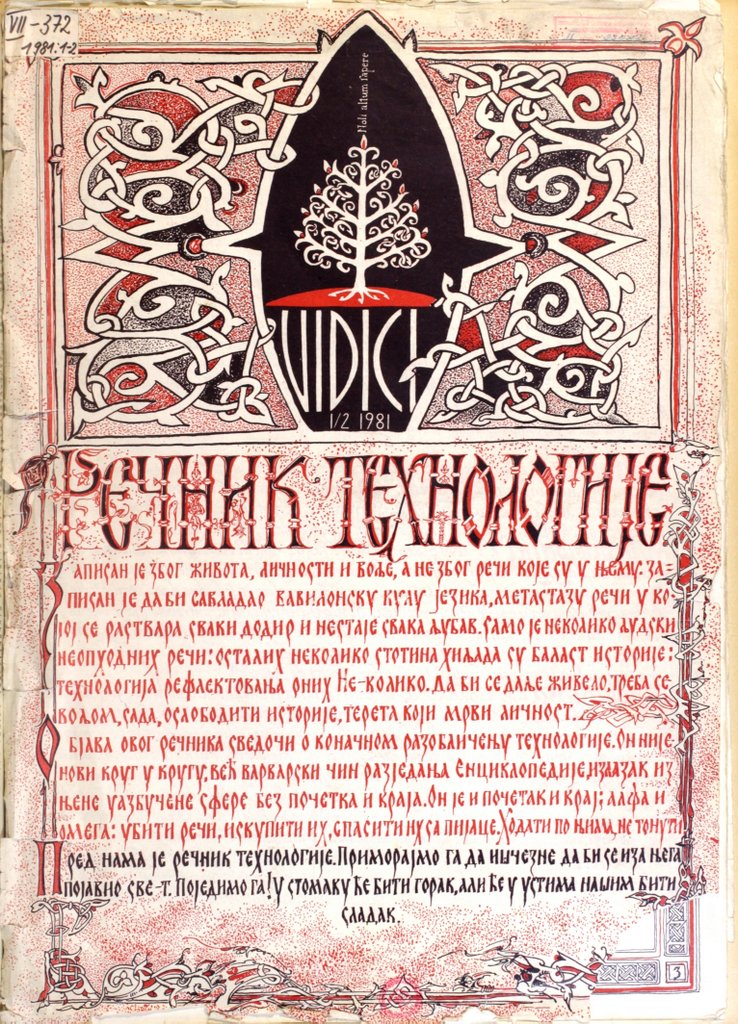 VII-372
1981.1-2
Noli altum sapere
VIDICI
1/2 1981
РЕЧНИК ТЕХНОЛОГИЈЕ
ЗАПИСАН ЈЕ ЗБОГ ЖИВОТА, ЛИЧНОСТИ И ВОЉЕ, А НЕ ЗБОГ РЕЧИ КОЈЕ СУ У ЊЕМУ. ЗА-
ПИСАН ЈЕ ДА БИ САВЛАДАО ВАВИЛОНСКУ КУЛУ ЈЕЗИКА, МЕТАСТАЗУ РЕЧИ У КО-
ЈОЈ СЕ РАСТВАРА СВАКИ ДОДИР И НЕСТАЈЕ СВАКА ЉУБАВ. САМО ЈЕ НЕКОЛИКО ЉУДСКИ
НЕОПХОДНИХ РЕЧИ: ОСТАЛИХ НЕКОЛИКО СТОТИНА ХИЉАДА СУ БАЛАСТ ИСТОРИЈЕ:
ТЕХНОЛОГИЈА РЕФЛЕКТОВАЊА ОНИХ НЕ-КОЛИКО. ДА БИ СЕ ДАЉЕ ЖИВЕЛО, ТРЕБА СЕ-
ВОЉОМ, САДА, ОСЛОБОДИТИ ИСТОРИЈЕ, ТЕРЕТА КОЈИ МРВИ ЛИЧНОСТ.
ОБЈАВА ОВОГ РЕЧНИКА СВЕДОЧИ О КОНАЧНОМ РАЗОБЛИЧЕЊУ ТЕХНОЛОГИЈЕ. ОН НИЈЕ
НОВИ КРУГ У КРУГУ, ВЕЋ ВАРВАРСКИ ЧИН РАЗЈЕДАЊА ЕНЦИКЛОПЕДИЈЕ, ИЗЛАЗАК ИЗ
ЊЕНЕ УАЗБУЧЕНЕ СФЕРЕ БЕЗ ПОЧЕТКА И КРАЈА. ОН ЈЕ И ПОЧЕТАК И КРАЈ; АЛФА И
ОМЕГА: УБИТИ РЕЧИ, ИСКУПИТИ ИХ, СПАСИТИ ИХ СА ПИЈАЦЕ. ХОДАТИ ПО ЊИМА, НЕ ТОНУТИ
ПРЕД НАМА ЈЕ РЕЧНИК ТЕХНОЛОГИЈЕ. ПРИМОРАЈМО ГА ДА ИШЧЕЗНЕ ДА БИ СЕ ИЗА ЊЕГА
ПОЈАВИО СВЕ-Т. ПОЈЕДИМО ГА! У СТОМАКУ ЋЕ БИТИ ГОРАК, АЛИ ЋЕ У УСТИМА НАШИМ БИТИ
СЛАДАК.
3